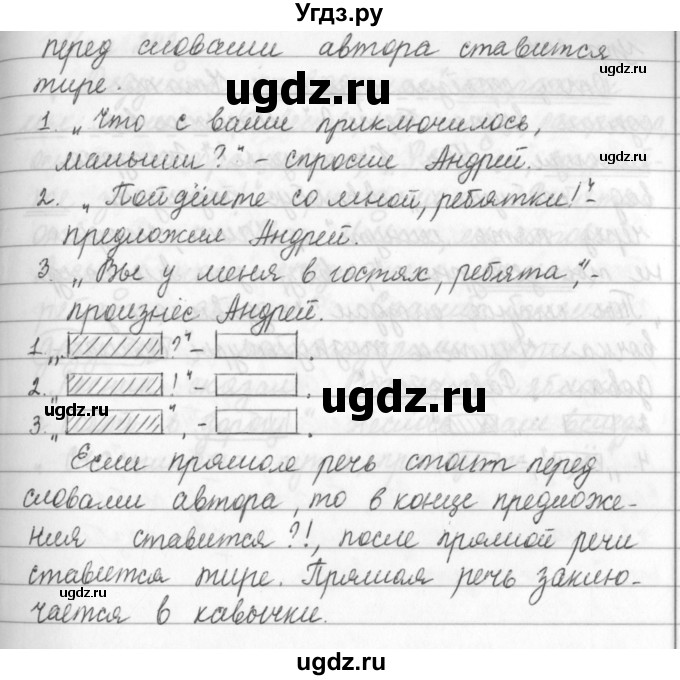 Угдз.ру
перед словами автора ставится
тире.
ugdz.ru
1. „Что с вами приключилось,
малыши?" - спросил Андрей.
ugdz.ru
2. „Пойдёмте со мной, ребятки!" -
предложил Андрей.
3. „Вы у меня в гостях, ребята", -
произнёс Андрей.
1. „ ?" - .
ugdz.ru
2. „ !" - .
ugdz.ru
ugdz.ru
3. „ ", - .
Если прямая речь стоит перед
словами автора, то в конце предложе-
ния ставится ?!, после прямой речи
ugdz.ru
ставится тире. Прямая речь заклю-
чается в кавычки.
ugdz.ru
ugdz.ru